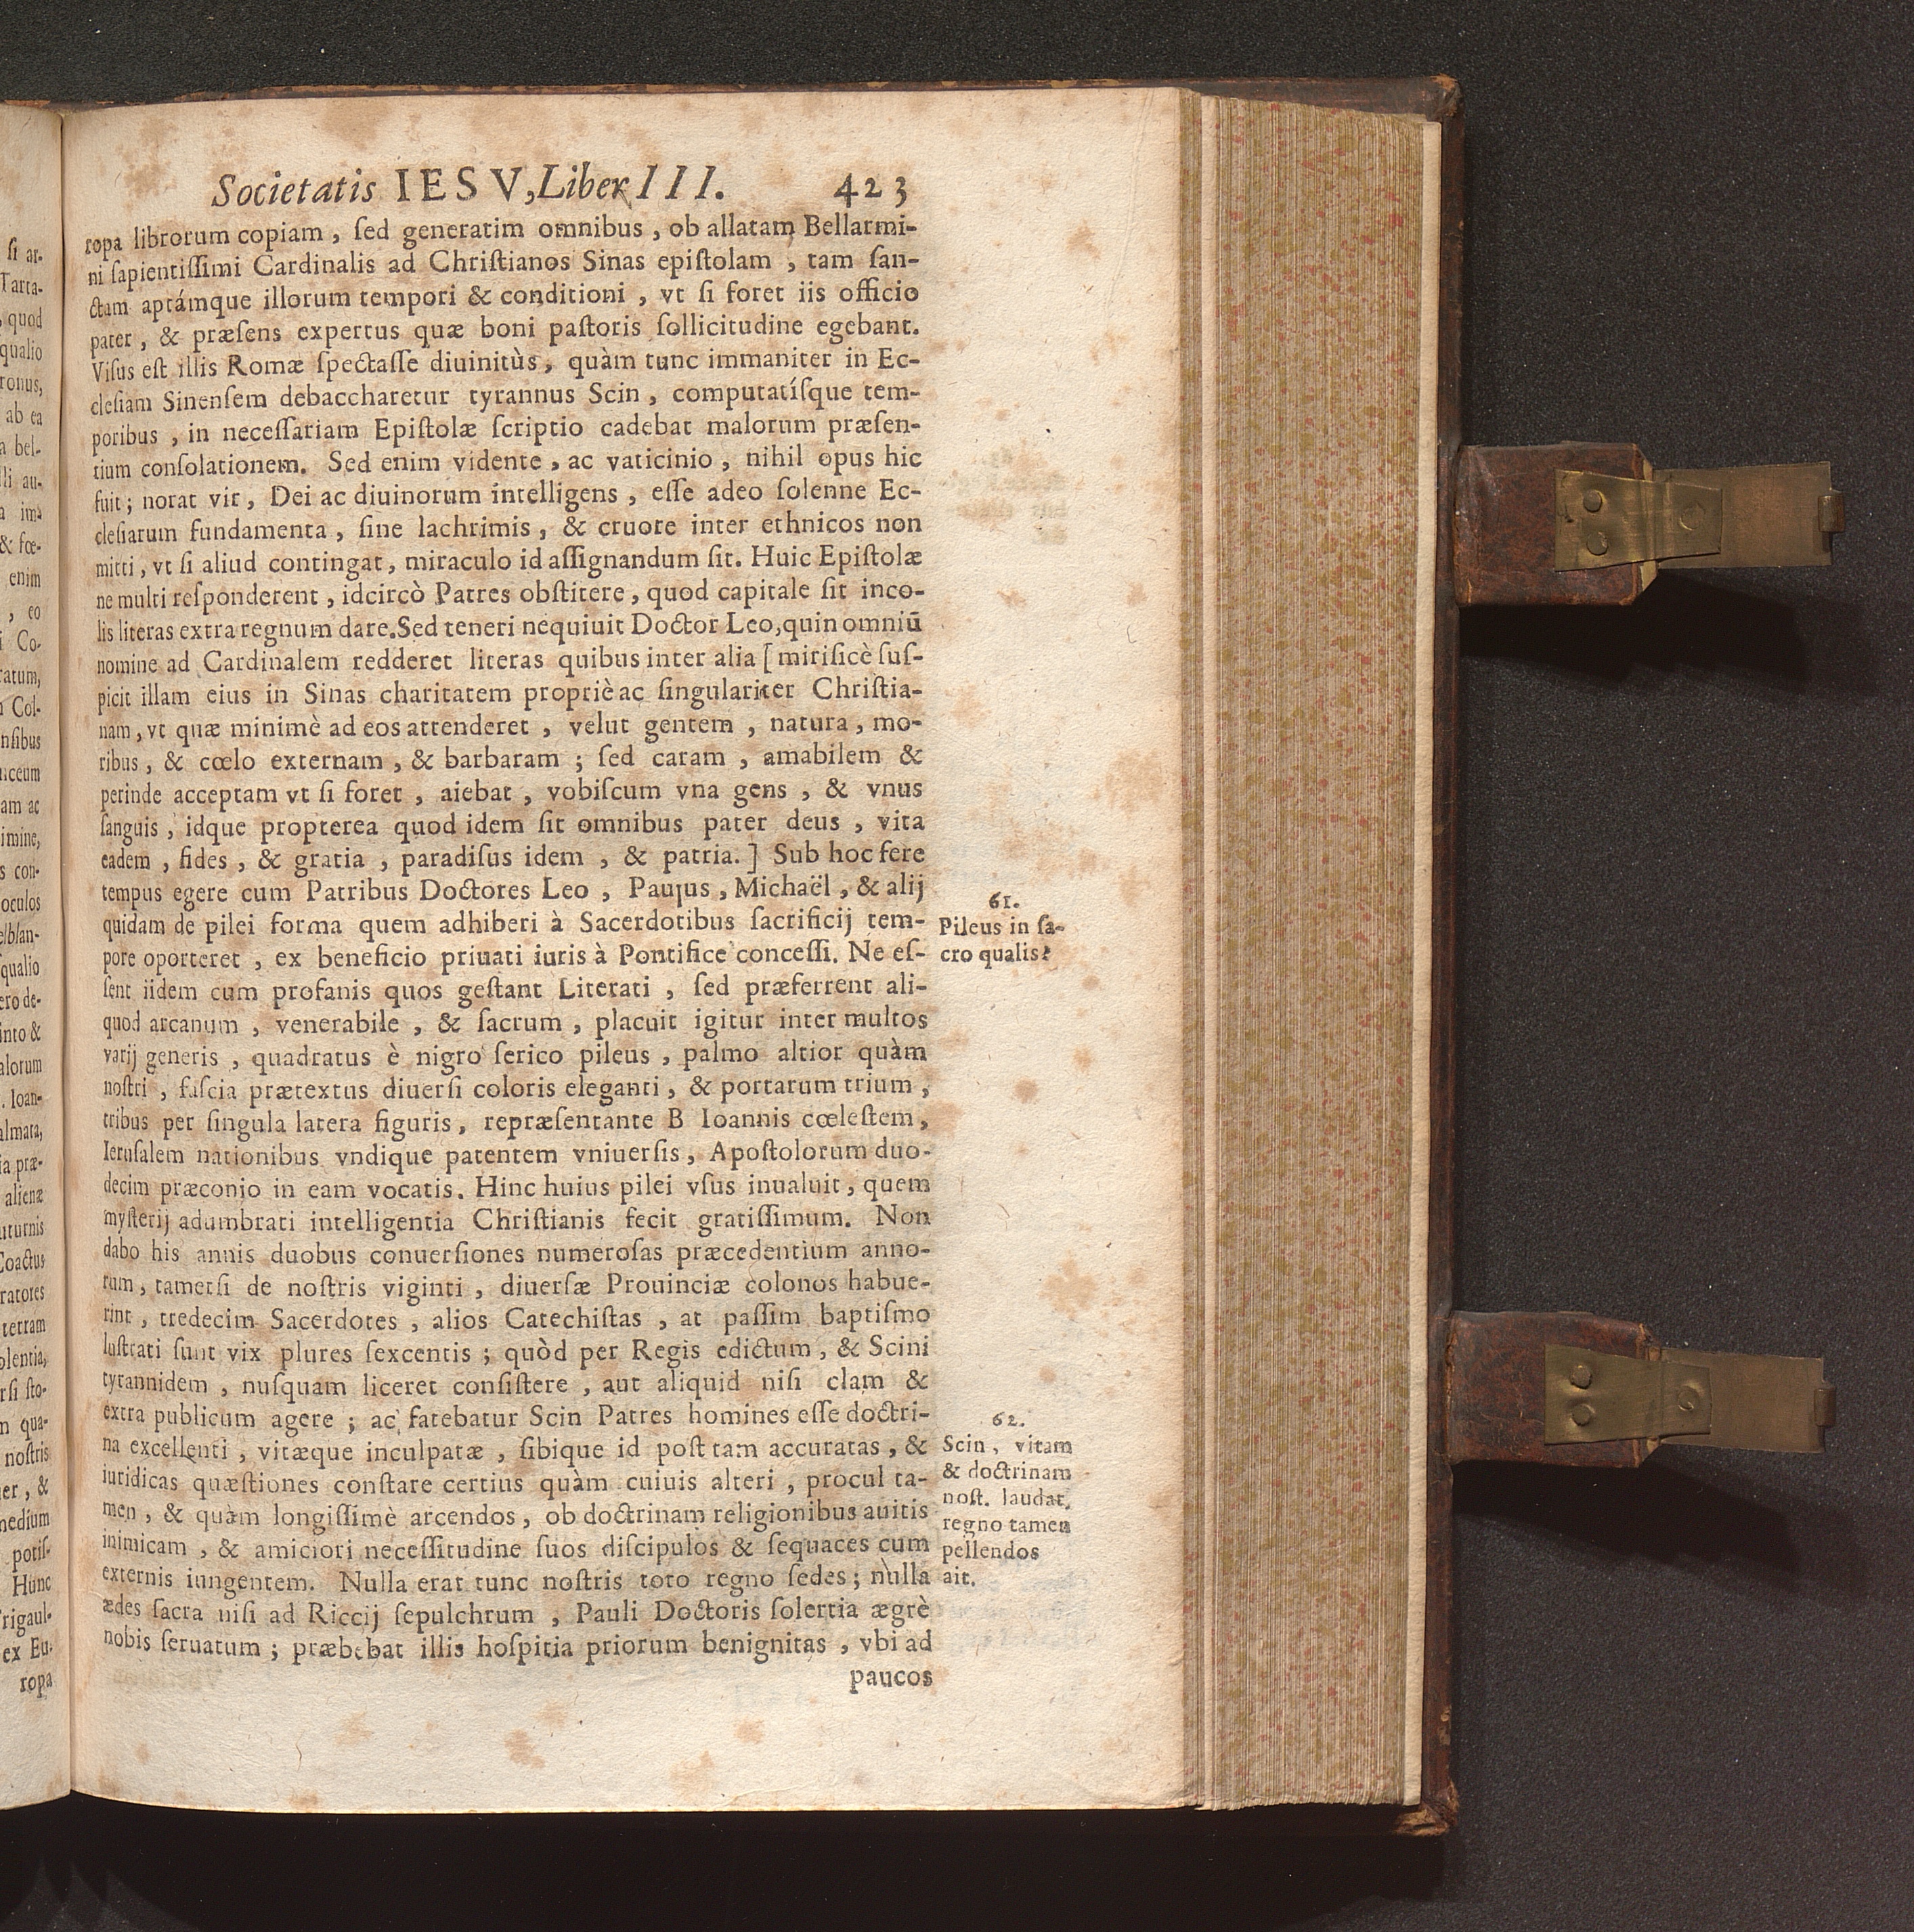 Societatis IESV, Liber III. 423
ropa librorum copiam, ſed generatim omnibus, ob allatam Bellarmi-
ni ſapientiſſimi Cardinalis ad Chriſtianos Sinas epiſtolam, tam ſan-
ctam aptámque illorum tempori & conditioni, vt ſi foret iis officio
pater, & præſens expertus quæ boni paſtoris ſollicitudine egebant.
Viſus eſt illis Romæ ſpectaſſe diuinitùs, quàm tunc immaniter in Ec-
cleſiam Sinenſem debaccharetur tyrannus Scin, computatíſque tem-
poribus, in neceſſariam Epiſtolæ ſcriptio cadebat malorum præſen-
tium conſolationem. Sed enim vidente, ac vaticinio, nihil opus hic
fuit; norat vir, Dei ac diuinorum intelligens, eſſe adeo ſolenne Ec-
cleſiarum fundamenta, ſine lachrimis, & cruore inter ethnicos non
mitti, vt ſi aliud contingat, miraculo id aſſignandum ſit. Huic Epiſtolæ
ne multi reſponderent, idcircò Patres obſtitere, quod capitale ſit inco-
lis literas extra regnum dare. Sed teneri nequiuit Doctor Leo, quin omniū
nomine ad Cardinalem redderet literas quibus inter alia [mirificè ſuſ-
picit illam eius in Sinas charitatem propriè ac ſingulariter Chriſtia-
nam, vt quæ minimè ad eos attenderet, velut gentem, natura, mo-
ribus, & cœlo externam, & barbaram; ſed caram, amabilem &
perinde acceptam vt ſi foret, aiebat, vobiſcum vna gens, & vnus
ſanguis, idque propterea quod idem ſit omnibus pater deus, vita
eadem, fides, & gratia, paradiſus idem, & patria.] Sub hoc fere
tempus egere cum Patribus Doctores Leo, Paulus, Michaël, & alij
quidam de pilei forma quem adhiberi à Sacerdotibus ſacrificij tem-
pore oporteret, ex beneficio priuati iuris à Pontifice conceſſi. Ne eſ-
ſent iidem cum profanis quos geſtant Literati, ſed præferrent ali-
quod arcanum, venerabile, & ſacrum, placuit igitur inter multos
varij generis, quadratus è nigro ſerico pileus, palmo altior quàm
noſtri, faſcia prætextus diuerſi coloris eleganti, & portarum trium,
tribus per ſingula latera figuris, repræſentante B Ioannis cœleſtem,
Ieruſalem nationibus vndique patentem vniuerſis, Apoſtolorum duo-
decim præconio in eam vocatis. Hinc huius pilei vſus inualuit, quem
myſterij adumbrati intelligentia Chriſtianis fecit gratiſſimum. Non
dabo his annis duobus conuerſiones numeroſas præcedentium anno-
rum, tametſi de noſtris viginti, diuerſæ Prouinciæ colonos habue-
rint, tredecim Sacerdotes, alios Catechiſtas, at paſſim baptiſmo
luſtrati ſunt vix plures ſexcentis; quòd per Regis edictum, & Scini
tyrannidem, nuſquam liceret conſiſtere, aut aliquid niſi clam &
extra publicum agere; ac fatebatur Scin Patres homines eſſe doctri-
na excellenti, vitæque inculpatæ, ſibique id poſt tam accuratas, &
iuridicas quæſtiones conſtare certius quàm cuiuis alteri, procul ta-
men, & quàm longiſſimè arcendos, ob doctrinam religionibus auitis
inimicam, & amiciori neceſſitudine ſuos diſcipulos & ſequaces cum
externis iungentem. Nulla erat tunc noſtris toto regno ſedes; nulla
ædes ſacra niſi ad Riccij ſepulchrum, Pauli Doctoris ſolertia ægrè
nobis ſeruatum; præbebat illis hoſpitia priorum benignitas, vbi ad
paucos
61.
Pileus in ſa-
cro qualis?
62.
Scin, vitam
& doctrinam
noſt. laudat,
regno tamen
pellendos
ait.